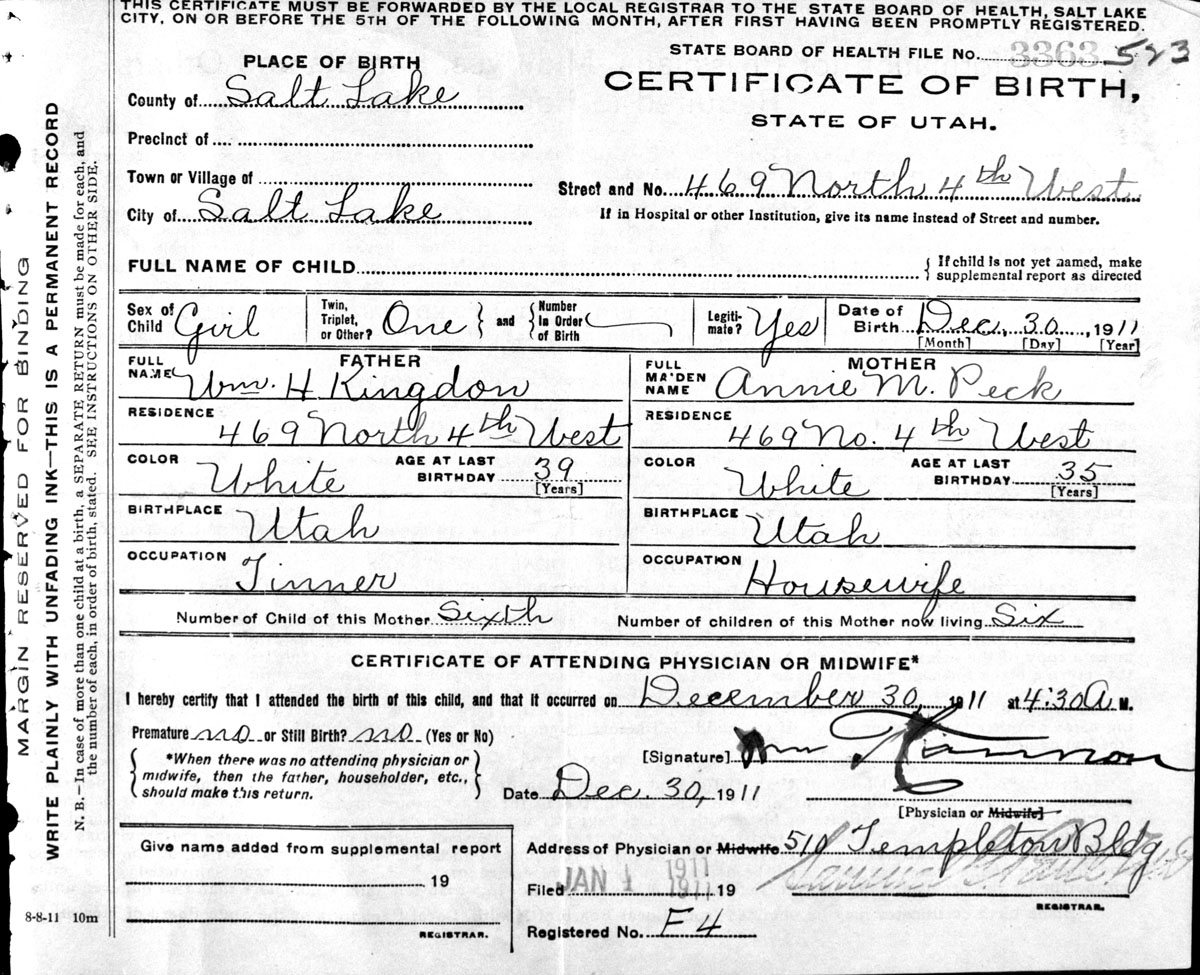 THIS CERTIFICATE MUST BE FORWARDED BY THE LOCAL REGISTRAR TO THE STATE BOARD OF HEALTH, SALT LAKE
CITY, ON OR BEFORE THE 5TH OF THE FOLLOWING MONTH, AFTER FIRST HAVING BEEN PROMPTLY REGISTERED.
STATE BOARD OF HEALTH FILE No. 3363 523
PLACE OF BIRTH
CERTIFICATE OF BIRTH,
STATE OF UTAH.
County of Salt Lake
Precinct of
Town or Village of
Street and No. 469 North 4th West
City of Salt Lake
If in Hospital or other Institution, give its name instead of Street and number.
FULL NAME OF CHILD
{ If child is not yet named, make
supplemental report as directed
Sex of Child Girl
Twin, Triplet, or Other? One } and { Number in Order of Birth
Legiti-mate? Yes
Date of Birth Dec. 30, 1911
[Month] [Day] [Year]
FATHER
FULL NAME Wm. H Kingdon
RESIDENCE 469 North 4th West
COLOR White AGE AT LAST BIRTHDAY 39 [Years]
BIRTHPLACE Utah
OCCUPATION Tinner
MOTHER
FULL MAIDEN NAME Annie M. Peck
RESIDENCE 469 No. 4th West
COLOR White AGE AT LAST BIRTHDAY 35 [Years]
BIRTHPLACE Utah
OCCUPATION Housewife
Number of Child of this Mother Sixth
Number of children of this Mother now living Six
CERTIFICATE OF ATTENDING PHYSICIAN OR MIDWIFE*
I hereby certify that I attended the birth of this child, and that it occurred on December 30, 1911 at 4:30 A M.
Premature no or Still Birth? no (Yes or No)
{ *When there was no attending physician or
midwife, then the father, householder, etc.,
should make this return. }
[Signature] Wm
Date Dec. 30, 1911
[Physician or Midwife]
Address of Physician or Midwife 510 Templeton Bldg
Give name added from supplemental report
19
REGISTRAR.
Filed JAN 1 1911 1911 19
REGISTRAR.
Registered No. F4
8-8-11 10m
MARGIN RESERVED FOR BINDING
WRITE PLAINLY WITH UNFADING INK—THIS IS A PERMANENT RECORD
N. B.—In case of more than one child at a birth, a SEPARATE RETURN must be made for each, and
the number of each, in order of birth, stated. SEE INSTRUCTIONS ON OTHER SIDE.